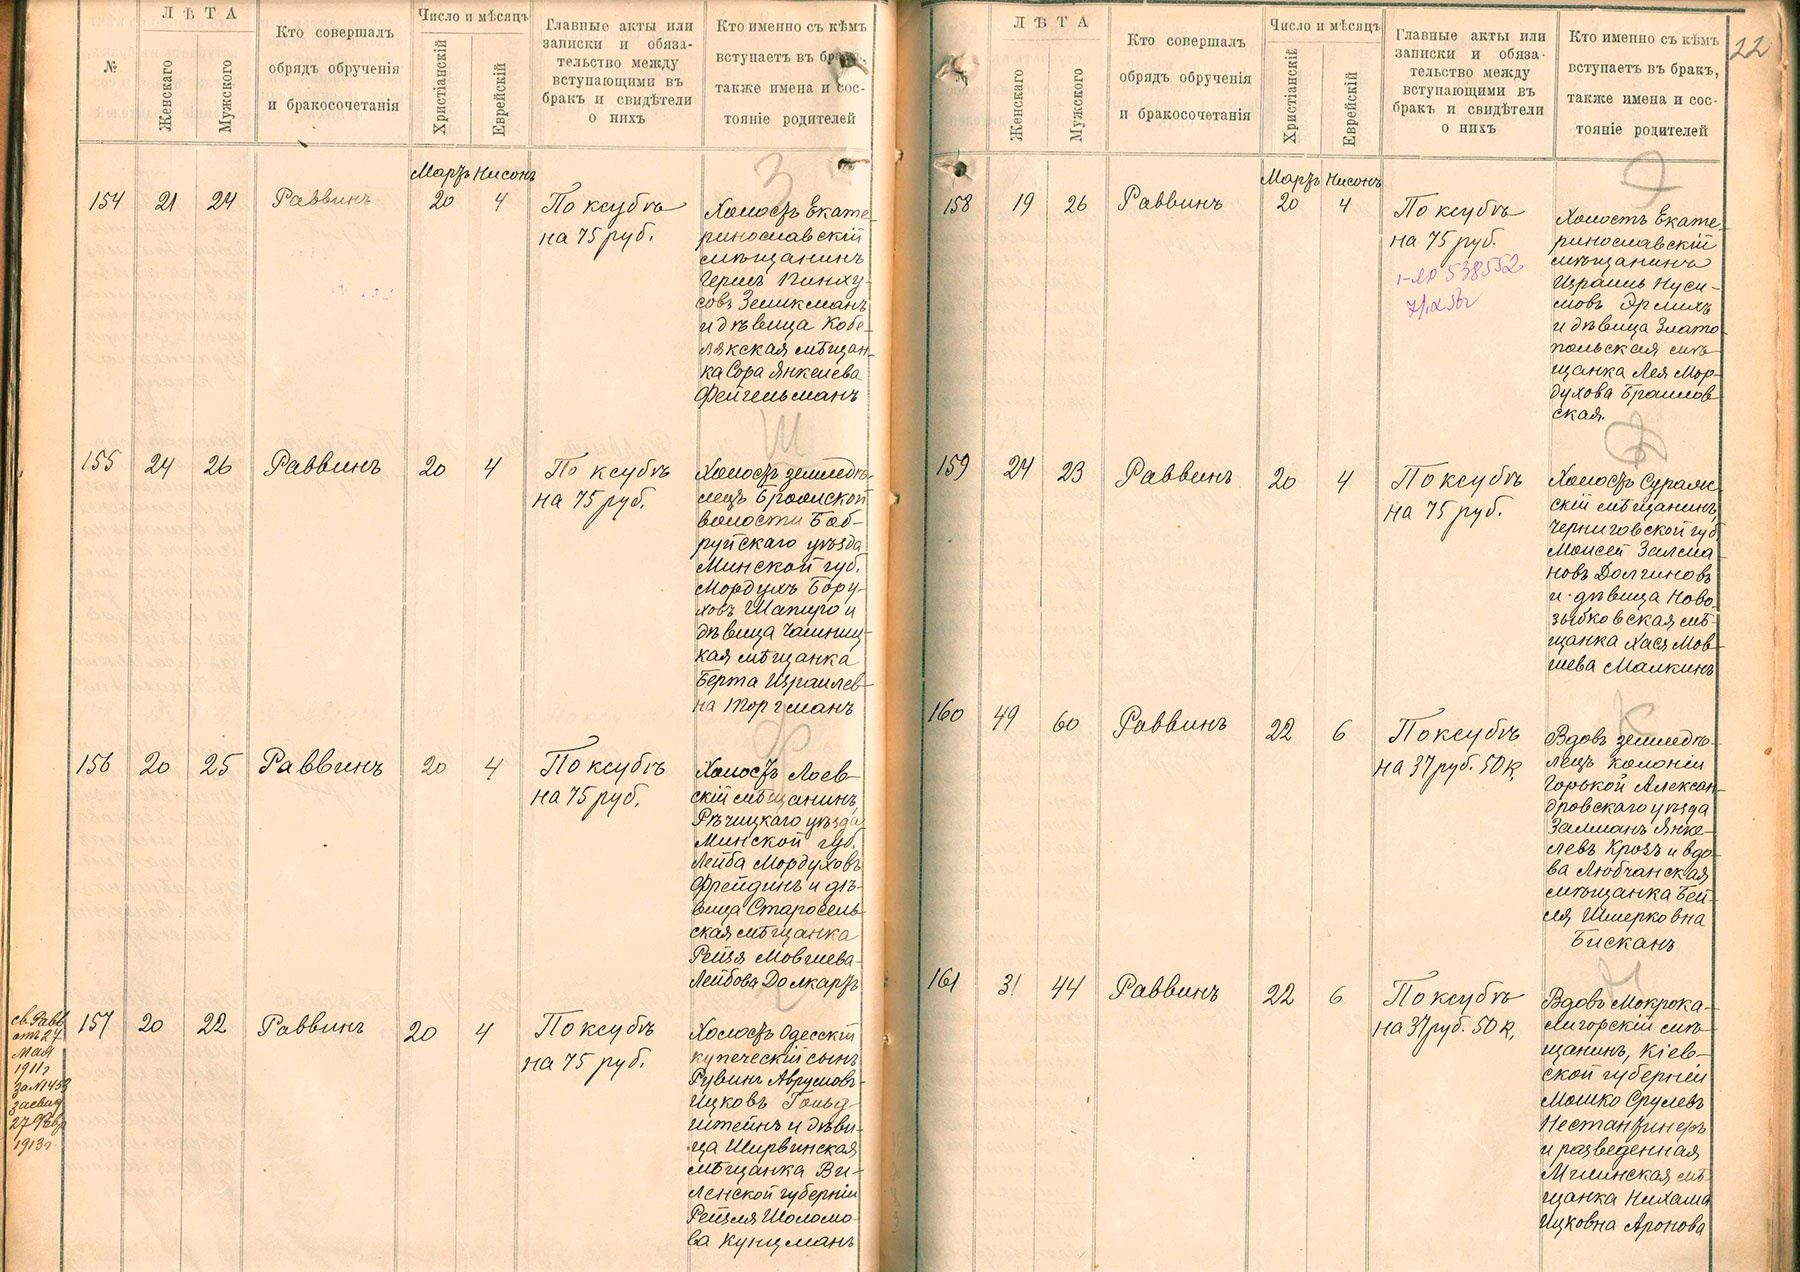 №
ЛѢТА
Женскаго
Мужского
Кто совершалъ
обрядъ обрученія
и бракосочетанія
Число и мѣсяцъ
Христіанскій
Еврейскій
Главные акты или
записки и обяза-
тельство между
вступающими въ
бракъ и свидѣтели
о нихъ
Кто именно съ кѣмъ
вступаетъ въ бракъ,
также имена и сос-
тояніе родителей
Мартъ Нисонъ
154 21 24 Раввинъ 20 4
По ксубѣ
на 75 руб.
З
Холостъ Екате-
ринославскій
мѣщанинъ
Гершъ Пинху-
совъ Зеликманъ
и дѣвица Кобе-
лякская мѣщан-
ка Сора Янкелева
Фейгельманъ
155 24 26 Раввинъ 20 4
По ксубѣ
на 75 руб.
Ш
Холостъ земледѣ-
лецъ
волости Боб-
руйскаго уѣзда
Минской губ.
Мордухъ Бору-
ховъ Шапиро и
дѣвица Чашниц-
кая мѣщанка
Берта Израилев-
на Торгманъ
156 20 25 Раввинъ 20 4
По ксубѣ
на 75 руб.
Ф
Холостъ Лоев-
скій мѣщанинъ,
Рѣчицкаго уѣзда
Минской губ.
Лейба Мордуховъ
Фрейдинъ и дѣ-
вица Старосель-
ская мѣщанка
Рейзя Мовшева-
Лейбова Долкартъ
св. Равв
отъ 27
мая
1911 г
за № 1453
засвид
27 Февр
1913 г.
157 20 22 Раввинъ 20 4
По ксубѣ
на 75 руб.
Холостъ Одесскій
купеческій сынъ
Рувинъ Аврумовъ-
Ицковъ Гольд-
штейнъ и дѣви-
ца Ширвинская
мѣщанка Ви-
ленской губерніи
Рейзля Шоломо-
ва Кунцманъ
22
ЛѢТА
Женскаго
Мужского
Кто совершалъ
обрядъ обрученія
и бракосочетанія
Число и мѣсяцъ
Христіанскій
Еврейскій
Главные акты или
записки и обяза-
тельство между
вступающими въ
бракъ и свидѣтели
о нихъ
Кто именно съ кѣмъ
вступаетъ въ бракъ,
также имена и сос-
тояніе родителей
Мартъ Нисонъ
158 19 26 Раввинъ 20 4
По ксубѣ
на 75 руб.
538552
Э
Холостъ Екате-
ринославскій
мѣщанинъ
Израиль Нуси-
мовъ Эрлихъ
и дѣвица Злато-
польская мѣ-
щанка Лея Мор-
духова Браилов-
ская.
159 24 23 Раввинъ 20 4
По ксубѣ
на 75 руб.
Д
Холостъ Сураж-
скій мѣщанинъ,
Черниговской губ
Моисей Залма-
новъ Долгиновъ
и дѣвица Ново-
зыбковская мѣ-
щанка Хася Мов-
шева Малкинъ
160 49 60 Раввинъ 22 6
По ксубѣ
на 37 руб. 50 к.
К
Вдовъ земледѣ-
лецъ колоніи
Горькой Алексан-
дровскаго уѣзда
Залманъ Янке-
левъ Крозъ и вдо-
ва Любчанская
мѣщанка Бей-
ля Шмерковна
Бисканъ
161 31 44 Раввинъ 22 6
По ксубѣ
на 37 руб. 50 к.
Н
Вдовъ Мокрока-
лигорскій мѣ-
щанинъ, Кіев-
ской губерніи
Мошко Срулевъ
Нестанѳинеръ
и разведенная
мѣ-
щанка Нихама
Ицковна Аронова